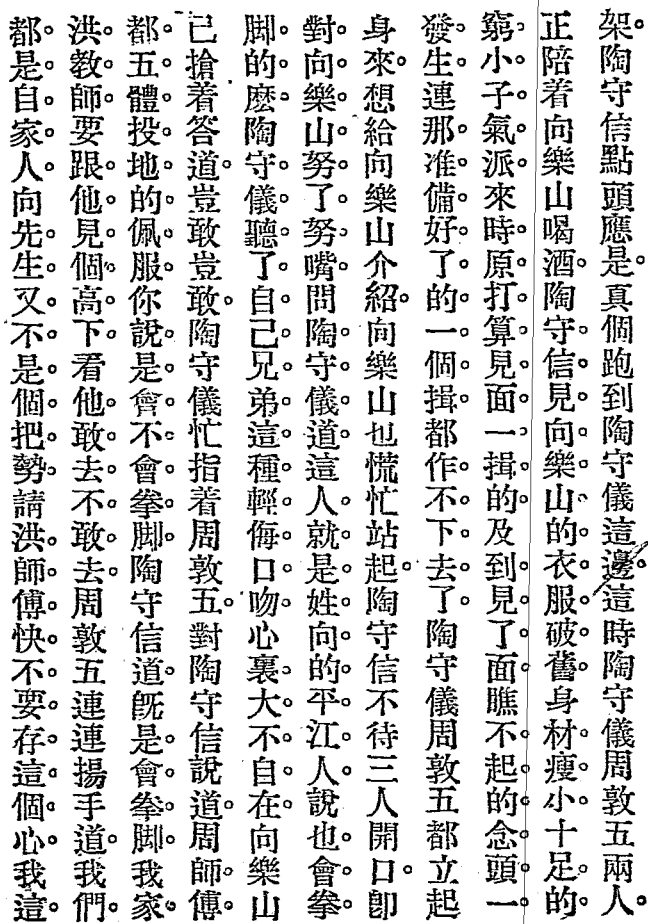 架。陶守信點頭應是。真個跑到陶守儀這邊。這時陶守儀周敦五兩人。
正陪着向樂山喝酒。陶守信見向樂山的衣服破舊身材瘦小十足的
窮小子氣派來時原打算見面一揖的及到見了面瞧不起的念頭一
發生連那准備好了的一個揖都作不下去了陶守儀周敦五都立起
身來。想給向樂山介紹。向樂山也慌忙站起。陶守信不待三人開口。卽
對向樂山努了努嘴問陶守儀道這人就是姓向的平江人說也會拳
脚的麽陶守儀聽了自己兄弟這種輕侮口吻心裏大不自在向樂山
已搶着答道。豈敢豈敢。陶守儀忙指着周敦五。對陶守信說道。周師傅
都五體投地的佩服你說是會不會拳脚陶守信道旣是會拳脚我家
洪教師要跟他見個高下看他敢去不敢去周敦五連連揚手道。我們
都是自家人向先生又不是個把勢請洪師傅快不要存這個心我這